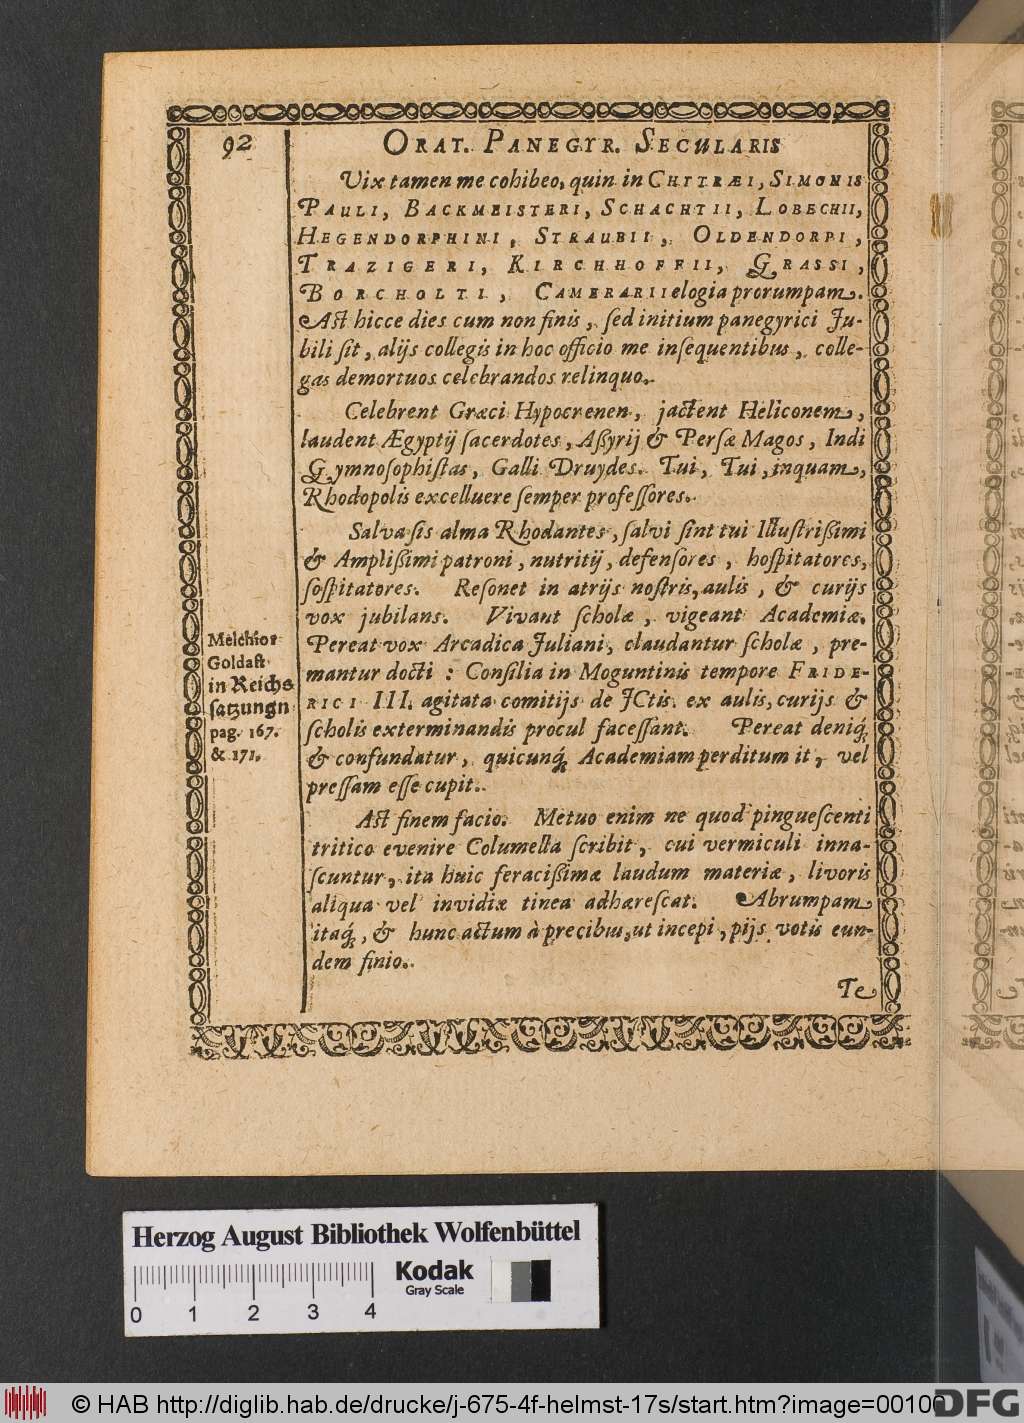 92
ORAT. PANEGYR. SECULARIS
Vix tamen me cohibeo, quin in CHYTRÆI, SIMONIS
PAULI, BACKMEISTERI, SCHACHTII, LOBECHII,
HEGENDORPHINI, STRAUBII, OLDENDORPI,
TRAZIGERI, KIRCHHOFFII, GRASSI,
BORCHOLTI, CAMERARII elogia prorumpam.
Ast hicce dies cum non finis, sed initium panegyrici Ju-
bili sit, alijs collegis in hoc officio me insequentibus, colle-
gas demortuos celebrandos relinquo.
Celebrent Græci Hypocrenen, jactent Heliconem,
laudent Ægyptij sacerdotes, Aßyrij & Persæ Magos, Indi
Gymnosophistas, Galli Druydes. Tui, Tui, inquam,
Rhodopolis excelluere semper professores.
Salva sis alma Rhodantes, salvi sint tui Illustrißimi
& Amplißimi patroni, nutritij, defensores, hospitatores,
sospitatores. Resonet in atrijs nostris, aulis, & curijs
vox jubilans. Vivant scholæ, vigeant Academiæ.
Pereat vox Arcadica Juliani, claudantur scholæ, pre-
mantur docti: Consilia in Moguntinis tempore FRIDE-
RICI III. agitata comitijs de JCtis ex aulis, curijs &
scholis exterminandis procul facessant. Pereat deniq́;
& confundatur, quicunq́; Academiam perditum it, vel
pressam esse cupit.
Melchior
Goldast
in Reichs
satzungn
pag. 167.
& 171.
Ast finem facio. Metuo enim ne quod pinguescenti
tritico evenire Columella scribit, cui vermiculi inna-
scuntur, ita huic feracißimæ laudum materiæ, livoris
aliqua vel invidiæ tinea adhærescat. Abrumpam
itaq́;, & hunc actum à precibus, ut incepi, pijs votis eun-
dem finio.
Te
Herzog August Bibliothek Wolfenbüttel
Kodak
Gray Scale
0 1 2 3 4
© HAB http://diglib.hab.de/drucke/j-675-4f-helmst-17s/start.htm?image=00100
DFG